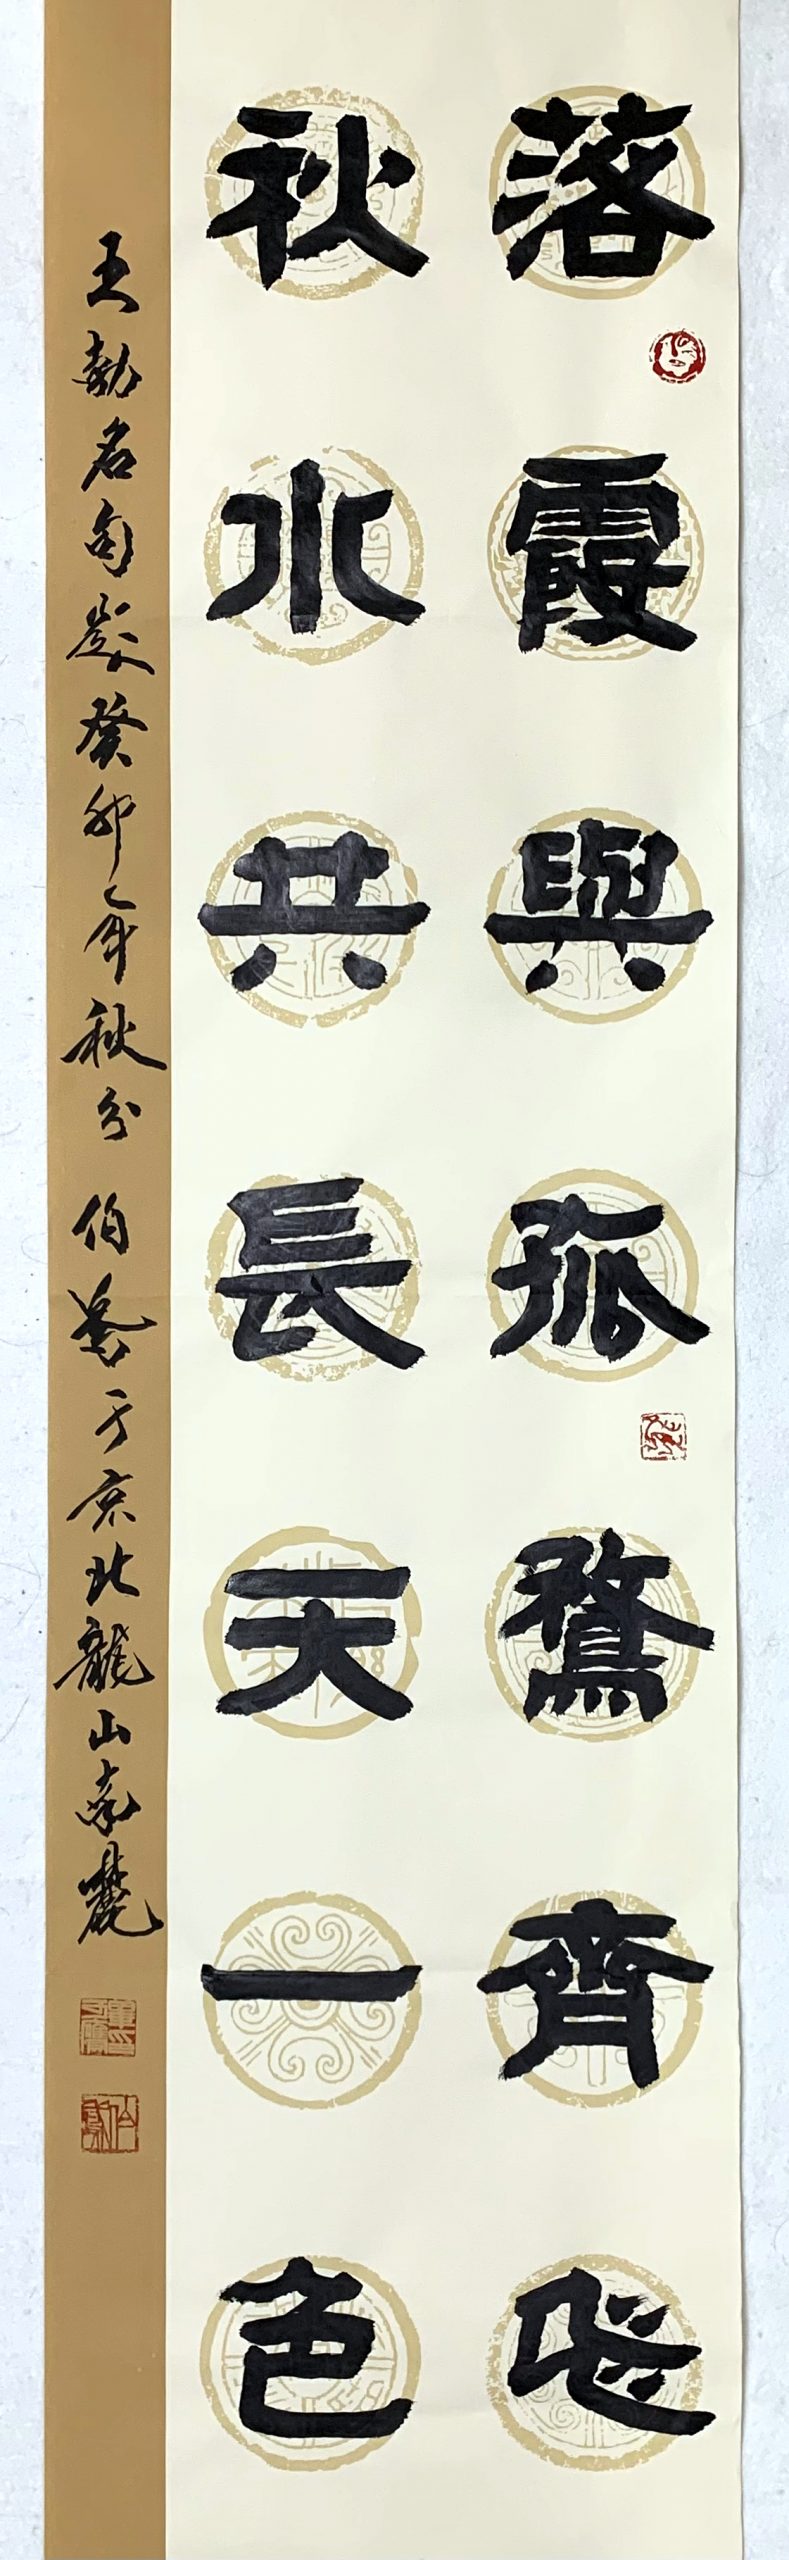 落霞與孤鶩齊飛
秋水共長天一色
王勃名句 歲癸卯年秋分 伯 于京北龍山南麓